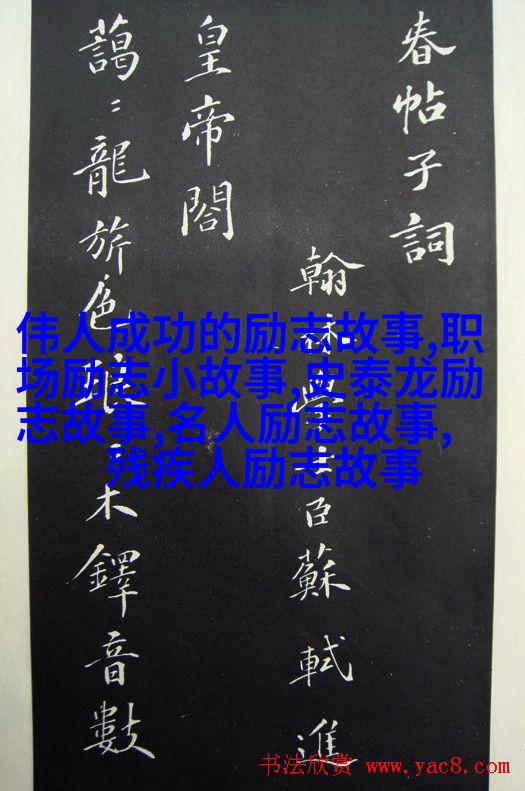 春帖子詞
翰林學士臣蘇軾進
皇帝閤
藹〻龍旂色琅〻木鐸音數
伟人成功的励志故事,职
场励志小故事,史泰龙励
志故事,名人励志故事,
残疾人励志故事
书法欣赏 www.yac8.com